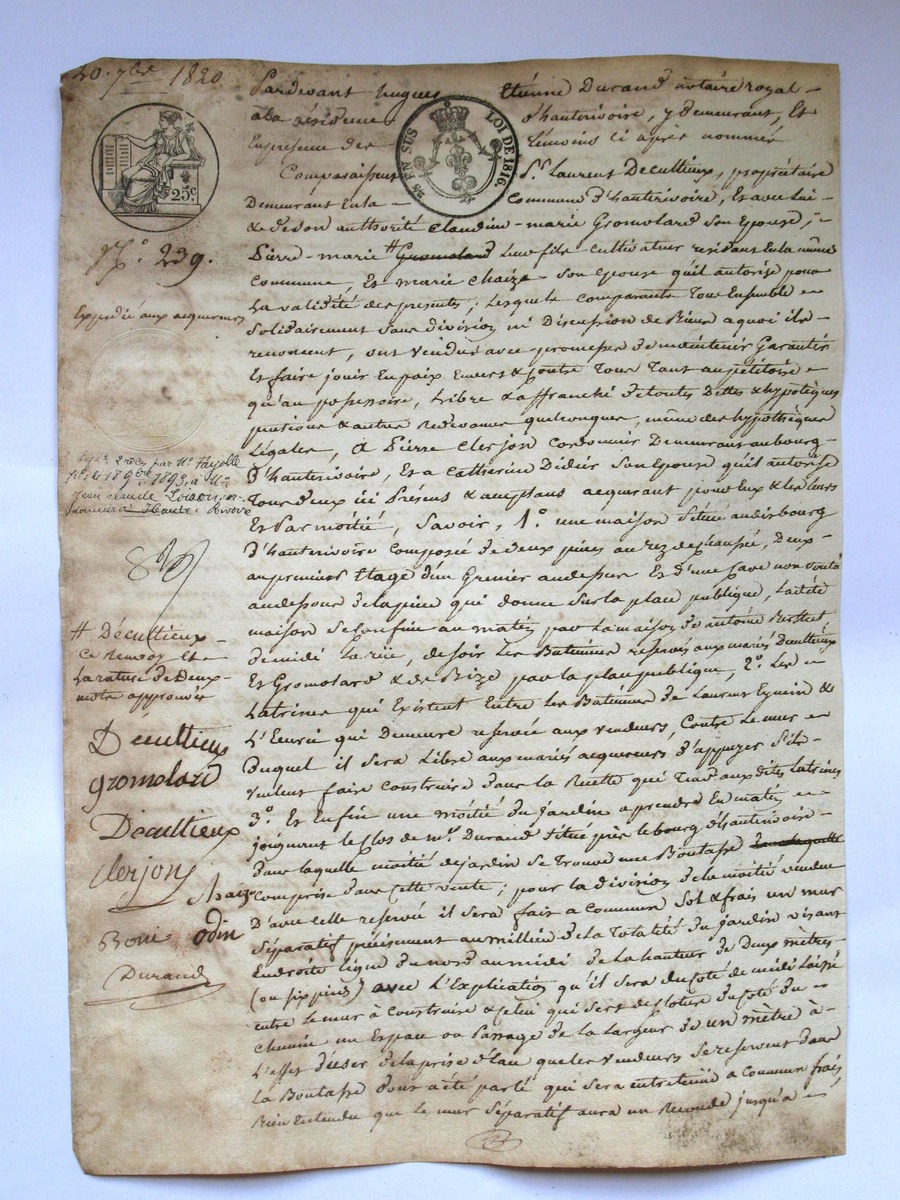 20. 7bre 1820
25c
EN SUS
LOI DE 1816.
N.º 239.
Expedié aux acquereurs
Jean Claude
# Décultieux
ce renvoy et
la rature de deux
mots approuvés
Décultieux
gromolard
Décultieux
Clerjon
Chaize
odin
Durand
Pardevant hugues Etienne Durand notaire royal
à la résidence d'hauterivoire, y demeurant, Et
En presence des témoins ci après nommés
Comparaissent Sr. Laurent Decultieux, propriétaire
Demeurant En la Commune d'hauterivoire, Et avec lui
& de son authorité Claudine-marie Gromolard son Epouse,
Pierre-marie # Gromolard Leur fils cultivateur residans En la même
Commune, Et marie Chaize son Epouse qu'il autorise pour
La validité des presentes, Lesquels comparants Tous Ensemble
Solidairement Sans division ni Discussion de Biens a quoi ils
renoncent, ont vendu avec promesse de maintenir Garantir
Et faire jouir En paix Envers & contre Tous Tant au pétitoire
qu'au possessoire, Libre & affranchi de toutes Dettes & hypotèques
pensions & autres redevances quelconques, même des hypothèques
Légales, A Pierre Clerjon Cordonnier Demeurant au bourg
D'hauterivoire, Et a Catherine Didier son Epouse qu'il autorise
Tous deux ici Présens & acceptans acquerant pour Eux & les leurs
Et Par moitié, Savoir, 1.º une maison Située audit bourg
D'hauterivoire Composée de deux pieces au rez de chaussée, Deux
au premier Etage d'un Grenier au dessus Et d'une Cave non voutée
au dessous de la piece qui donne sur la place publique, Ladite
maison Se Confine au matin par La maison de antoine
de midi La rüe, de soir Les Batimens reservés aux mariés Decultieux
Et Gromolard & de Bize par la place publique, 2.º Les
Latrines qui Existent Entre Les Batimens de Laurent &
L'Ecurie qui Demeure reservée aux vendeurs, Contre Le mur
Duquel il Sera Libre aux mariés acquereurs d'appuyer S'ils
veulent faire Construire dans la Ruette qui aux dites Latrines
3.º Et Enfin une moitié du jardin a prendre En matin
joignant le Clos de mr. Durand Situé près le bourg d'hauterivoire
Dans laquelle moitié de jardin Se Trouve une Boutasse
comprise dans Cette vente; pour la division de la moitié vendue
D'avec celle reservée il Sera fait a Commun Sol & frais un mur
Séparatif précisement au millieu de la Totalité du jardin visant
En droite ligne du nord au midi de la hauteur de Deux mètres
(ou six pieds) avec L'Explication qu'il Sera du Coté de midi Laissé
entre le mur à Construire & Celui qui Sert de Cloture du Coté du
Chemin un Espace ou Passage de la Largeur de un mètre à
L'effet d'user de la prise d'Eau que les vendeurs Se reservent dans
La Boutasse dont a été parlé qui Sera entretenue a Commun frais
Bien Entendu que le mur Séparatif aura un jusqu'a